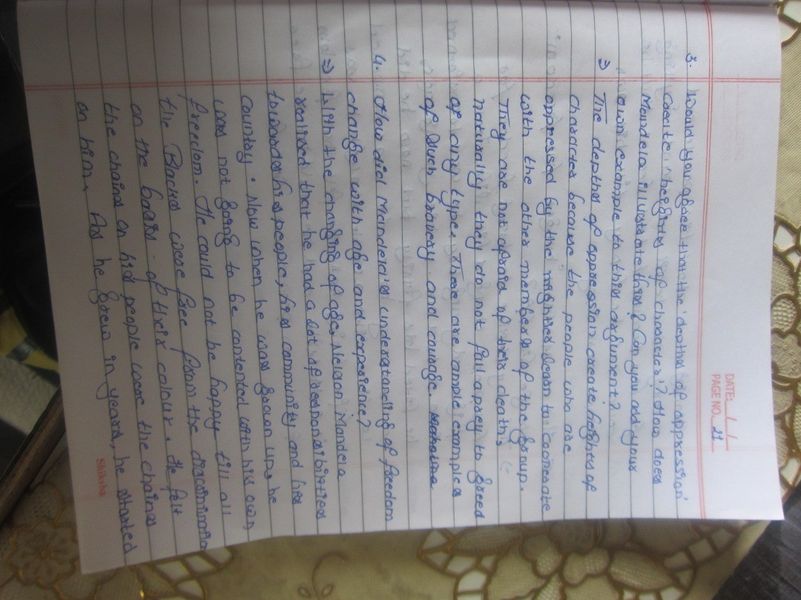 DATE: / /
PAGE NO. 21
3. Would you agree that the 'depths of oppression'
create 'heights of character'? How does
Mandela illustrate this? Can you add your
own example to this argument?
⇒ The depths of oppression create heights of
character because the people who are
oppressed by the learn to cooperate
with the other members of the group.
They are not afraid of their death.
naturally they do not fall a prey to greed
of any type. There are ample examples
of such bravery and courage.
4. How did Mandela's understanding of freedom
change with age and experience?
⇒ With the changing of age, Nelson Mandela
realised that he had a lot of responsibilities
towards his people, his community and his
country. Now when he was grown up, he
was not going to be contented with his own
freedom. He could not be happy till all
the Blacks were free from the discrimination
on the basis of their colour. He felt
the chains on his people were the chains
on him. As he grew in years, he started
Shiksha